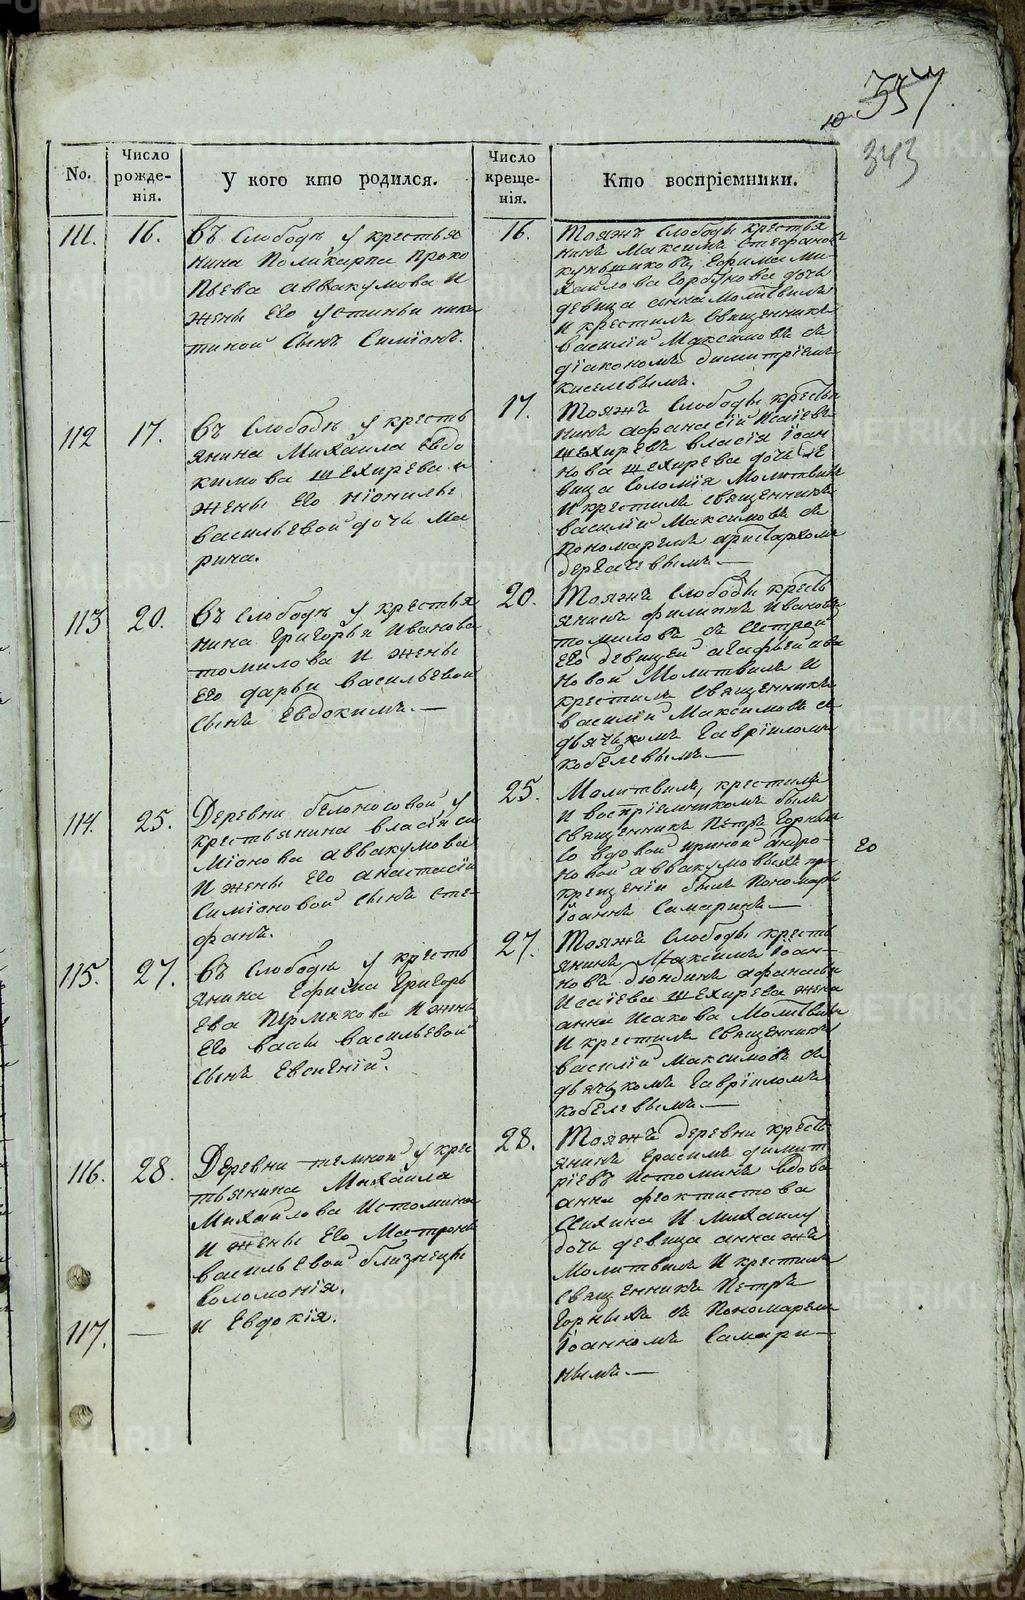 357
343
No.
Число рожде-нія.
У кого кто родился.
Число креще-нія.
Кто воспріемники.
111.
16.
Въ Слободѣ у крестья
нина Поликарпа Проко
пьева Аввакумова и
жены его Устиньи Ники
тиной сынъ Симіонъ.
16.
Тояжъ Слободы крестья
нинъ Максимъ Стефановъ
Ефима Ми
хайлова Горбунова дочь
девица Анна Молитвилъ
и крестилъ Священникъ
Василій Максимовъ съ
діакономъ Димитріемъ
Киселевымъ.
112
17.
Въ Слободѣ у кресть
янина Михаила Евдо
кимова Шехирева и
жены его Ніонилы
Васильевой дочь Ма
рина.
17.
Тояжъ Слободы крестья
нинъ Афанасій Исаіевъ
Шехиревъ Власія Іоан
нова Шехирева дочь де
вица Соломія Молитвилъ
и крестилъ Священникъ
Василій Максимовъ съ
пономаремъ Аристархомъ
Дергачевымъ.—
113
20.
Въ Слободѣ у крестья
нина Григорья Иванова
Томилова и жены
его Дарьи Васильевой
сынъ Евдокимъ.—
20.
Тояжъ Слободы кресть
янинъ Филиппъ Ивановъ
Томиловъ съ сестрой
его девицей Агафьей Ива
новой Молитвилъ и
крестилъ Священникъ
Василій Максимовъ съ
дьячькомъ Гавріиломъ
Кобелевымъ—
114.
25.
Деревни Белоносовой у
крестьянина Власія Си
міонова Аввакумова
и жены его Анастасіи
Симіоновой сынъ Сте-
фанъ.
25.
Молитвилъ, крестилъ
и воспріемникомъ былъ
Священникъ Петръ Горныхъ
со вдовой Ириной Андро-
новой Аввакумовыхъ при
крещеніи былъ пономарь
Іоаннъ Самаринъ.—
115.
27.
Въ Слободѣ у кресть
янина Ефима Григорь
ева Пермякова и жены
его Васы Васильевой
сынъ Евсигній.
27.
Тояжъ Слободы кресть
янинъ Максимъ Іоан-
новъ Дюндинъ Афанасьи
Исаіева Шехирева жена
Анна Исакова Молитвилъ
и крестилъ Священникъ
Василій Максимовъ съ
дьячькомъ Гавріиломъ
Кобелевымъ.—
116.
28.
Деревни Темной у крес
тьянина Михаила
Михайлова Истомина
и жены его Матроны
Васильевой близнецы
Соломонія.
28.
Тояжъ деревни кресть
янинъ Герасимъ Димит
ріевъ Истоминъ вдова
Анна Феоктистова
и Михаилу
дочь девица Анна жъ
Молитвилъ и крестилъ
Священникъ Петръ
Горныхъ съ Пономаремъ
Іоанномъ Самари—
нымъ.—
117.
—
и Евдокія.
METRIKI.GASO-URAL.RU